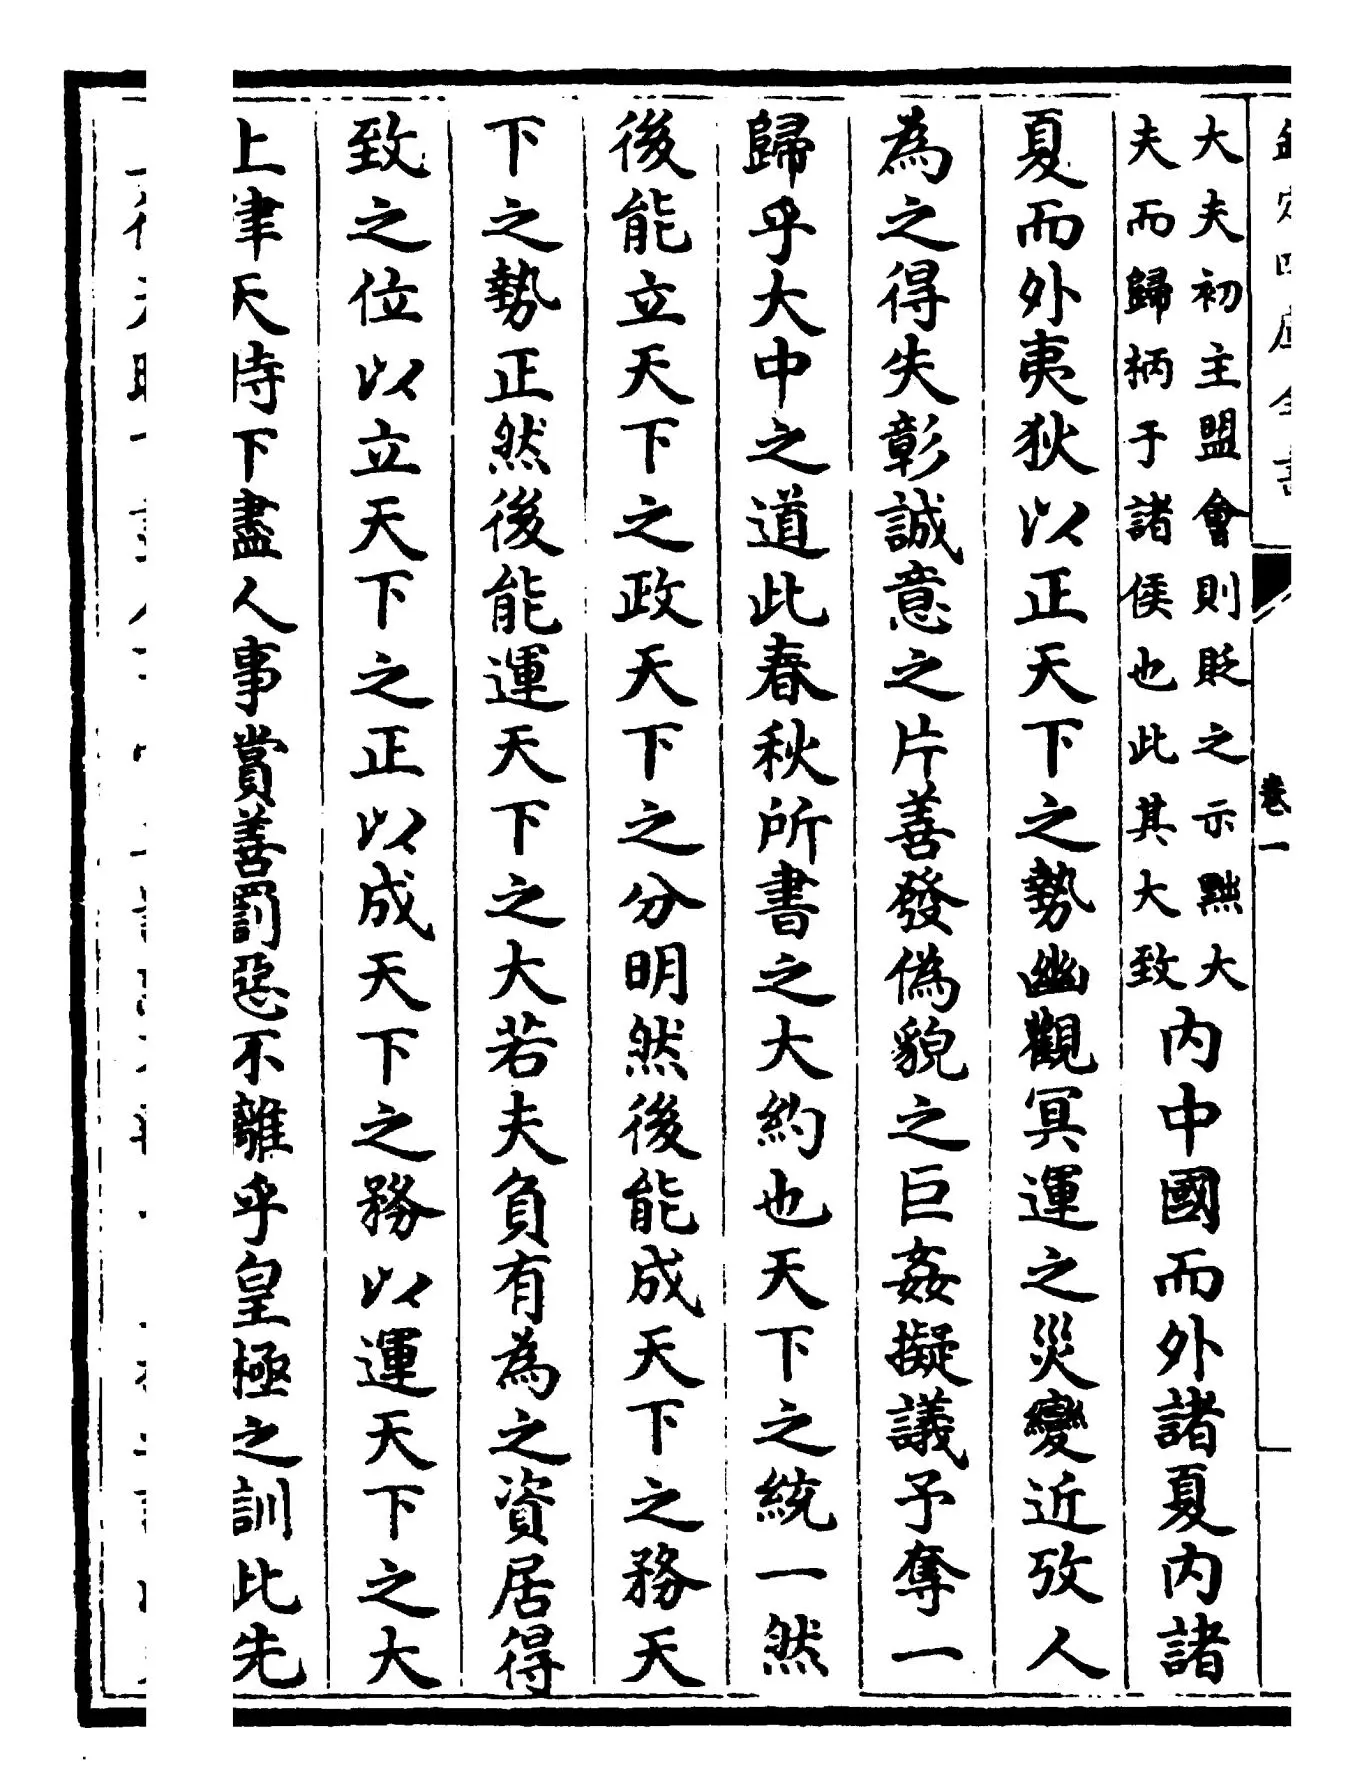 卷一
大夫初主盟會則貶之示黜大
夫而歸柄于諸侯也此其大致
内中國而外諸夏内諸
夏而外夷狄以正天下之勢幽觀冥運之災變近攷人
為之得失彰誠意之片善發偽貌之巨姦擬議予奪一
歸乎大中之道此春秋所書之大約也天下之統一然
後能立天下之政天下之分明然後能成天下之務天
下之勢正然後能運天下之大若夫負有為之資居得
致之位以立天下之正以成天下之務以運天下之大
上律天時下盡人事賞善罰惡不離乎皇極之訓此先